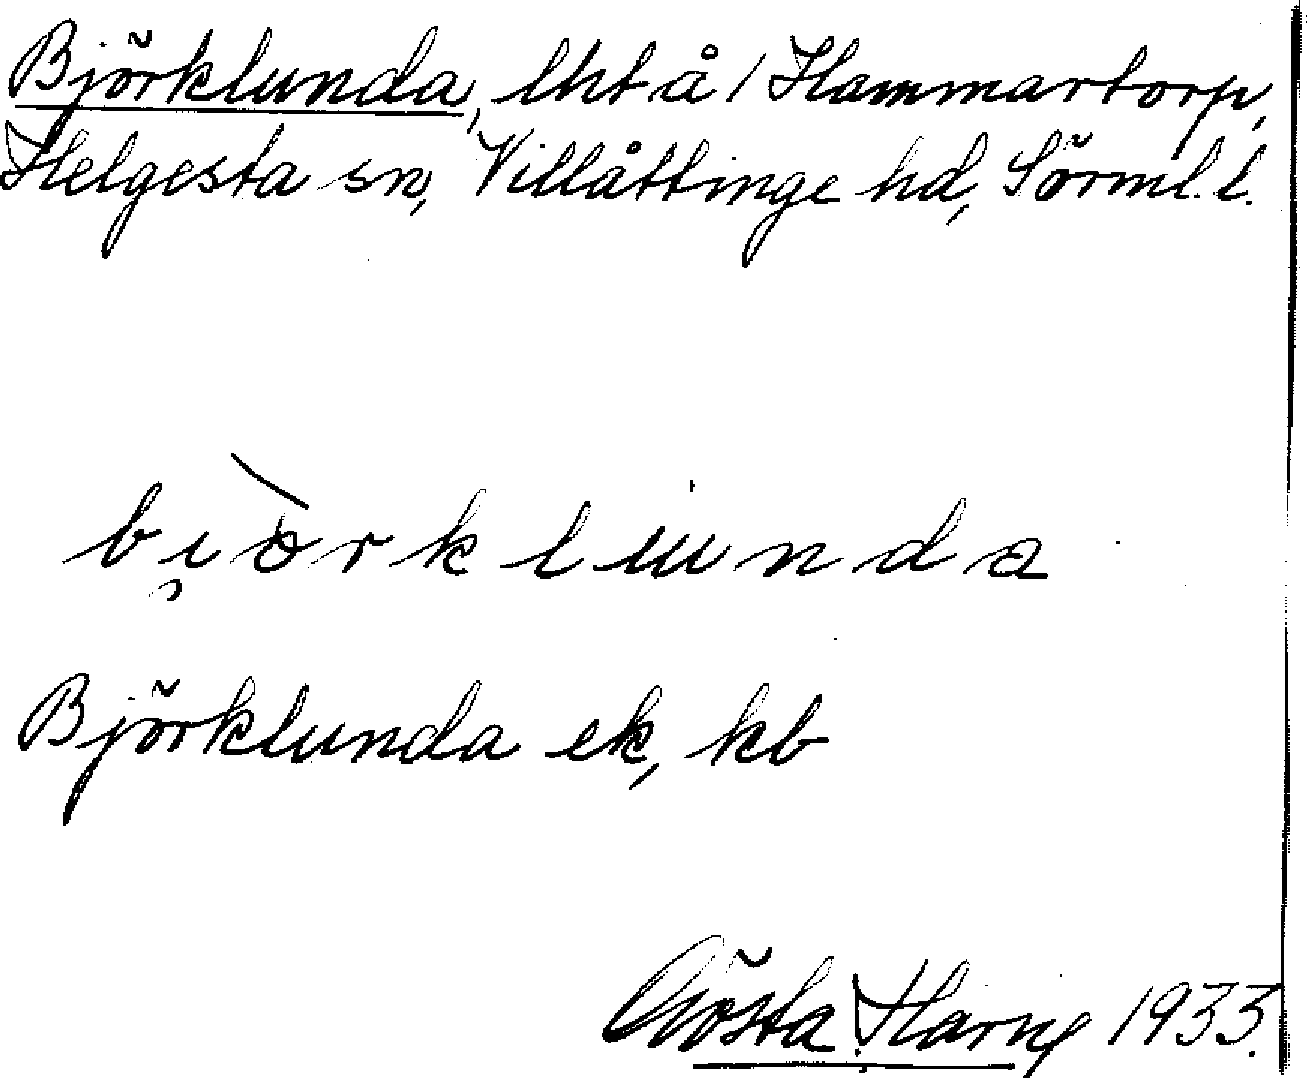 Björklunda, lht å / Hammartorp,
Helgesta sn, Villåttinge hd, Sörml. l.
bi̯òrklunda
Björklunda ek, kb
Gösta Harng 1933.